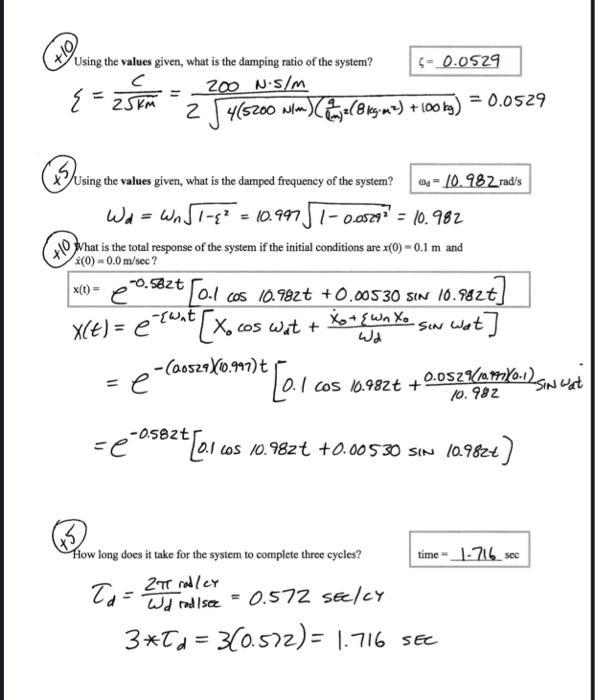 x10
Using the values given, what is the damping ratio of the system? ζ = 0.0529
ξ = C / 2√KM = 200 N·S/m / 2√4(5200 N/m)(9/(1m)²(8 kg·m²) + 100 kg) = 0.0529
x5
Using the values given, what is the damped frequency of the system? ωd = 10.982 rad/s
Wd = Wn√1-ξ² = 10.997√1-0.0529² = 10.982
x10
What is the total response of the system if the initial conditions are x(0) = 0.1 m and
ẋ(0) = 0.0 m/sec?
x(t) = e^-0.582t [0.1 cos 10.982t + 0.00530 SIN 10.982t]
X(t) = e^-ξWnt [X₀ cos Wdt + Ẋ₀+ξWnX₀ / Wd SIN Wdt]
= e^-(0.0529)(10.997)t [0.1 cos 10.982t + 0.0529(10.997)(0.1) / 10.982 SIN Wdt
= e^-0.582t [0.1 cos 10.982t + 0.00530 SIN 10.982t]
x5
How long does it take for the system to complete three cycles? time = 1.716 sec
τd = 2π rad/cy / Wd rad/sec = 0.572 sec/cy
3*τd = 3(0.572) = 1.716 SEC